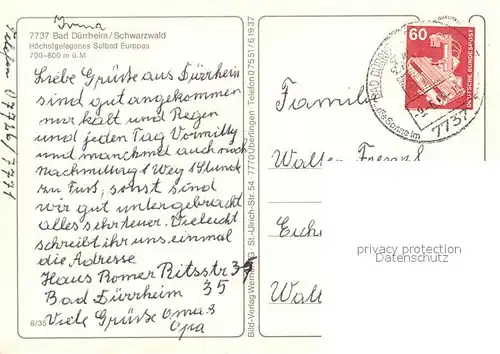 Irma
7737 Bad Dürrheim / Schwarzwald
Höchstgelegenes Solbad Europas
700–800 m ü.M.
Liebe Grüße aus Dürrheim
sind gut angekommen
nur kalt und Regen
und jeden Tag Vormittg
und manchmal auch noch
Nachmittag 1 Weg 1 Stunde
zu Fuß, sonst sind
wir gut untergebracht
alles sehr teuer. Vieleicht
schreibt ihr uns einmal
die Adresse
Haus Romer Ritsstr 35
Bad Dürrheim 35
Viele Grüße Omas
Opa
6/35
Telefon 07726/7771
Bild-Verlag Werner St.-Ulrich-Str. 54 · 7770 Überlingen · Telefon 0 75 51 / 6 19 37
60
DEUTSCHE BUNDESPOST
BAD DÜRR
die Sonne im
7737
Famili
Walte
Eich
Wal
privacy protection
Datenschutz